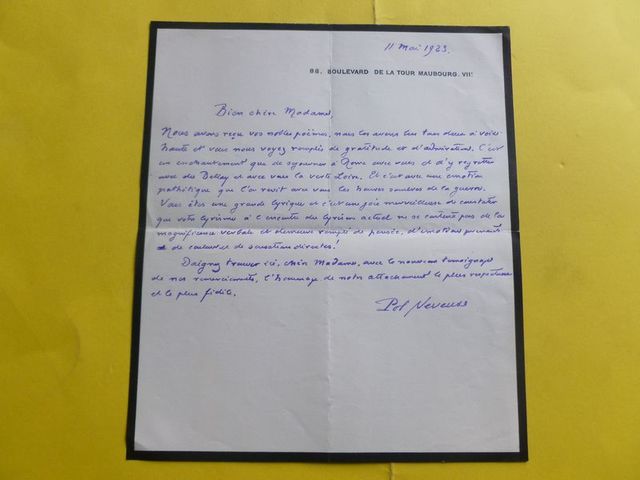 11 Mai 1923.
88, BOULEVARD DE LA TOUR MAUBOURG. VIIE
Bien chère Madame,
Nous avons reçu vos nobles poèmes, nous les avons lus tous deux à voix
haute et vous nous voyez remplis de gratitude et d'admiration. C'est
un enchantement que de séjourner à Rome avec vous et d'y regretter
avec du Bellay et avec vous la verte Loire. Et c'est avec une émotion
pathétique que l'on revit avec vous les heures de la guerre.
Vous êtes une grande lyrique et c'est une joie merveilleuse de constater
que votre lyrisme à l'encontre du lyrisme actuel ne se contente pas de la
magnificence verbale et demeure rempli de pensée, d'émotions
et de couleurs de sensations directes!
Daignez trouver ici, chère Madame, avec le nouveau témoignage
de nos remerciements, l'hommage de notre attachement le plus respectueux
et le plus fidèle.
Pol Neveux